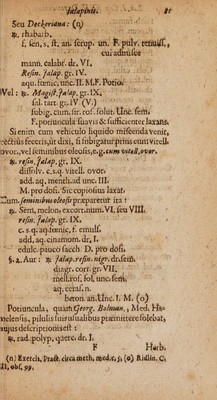 Jalapinis. 81
Seu Deckeriana: (n)
℞. rhabarb.
f. sen, s. ſt. ani ſerup. un. F. pulv. tenuiſſ.,
cui admiſce
mann. calabr. dr. VI.
Reſin. Jalap. gr. IV.
aqu. fœnic. unc. II. M.F. Potio.
Vel: ℞. Magiſt. Jalap. gr. IX.
ſal. tart. gr. IV (V)
ſubig. cum ſir. roſ. ſolut. Unc. ſem.
F. potiuncula ſuavis & ſufficienter laxans.
Si enim cum vehiculo liquido miſcenda venit,
rectius feceris, ut dixi, ſi ſubigatur prius cum vitell.
ovor., vel ſeminibus oleoſis, e.g. cum vitell. ovor.
℞. reſin. Jalap. gr. IX.
diſſolv. c. s.q. vitell. ovor.
add. aq. menth. ad unc. III.
M. pro doſi. Sic copioſus laxat.
Cum ſeminibus oleoſis præparetur ita:
℞. Sem. melon. excort. num. VI. ſeu VIII.
reſin. Jalap. gr. IX.
c. s. q. aq. fœnic. f. emulſ.
add. aq. cinamom. dr. I.
edulc. pauco ſacch. D. pro doſi.
§. 2. Aur: ℞. Jalap. reſin. nigr. dr. ſem.
diagr. corr. gr. VII,
mell. roſ. ſol. unc. ſem.
aq. ceraſ. n.
beton. an. Unc. I. M. (o)
Potiuncula, quam Georg. Bolman., Med. Ha-
melenſis, piluliſ ſuis uſualibus præmittere ſolebat,
cujus deſcriptio niſi eſt:
℞. rad. polyp. querc. dr. I.
F Herb.
(n) Exercit. Pract. circa meth. med. c, 5, (o) Ridlin. C.
II, obſ. 99.